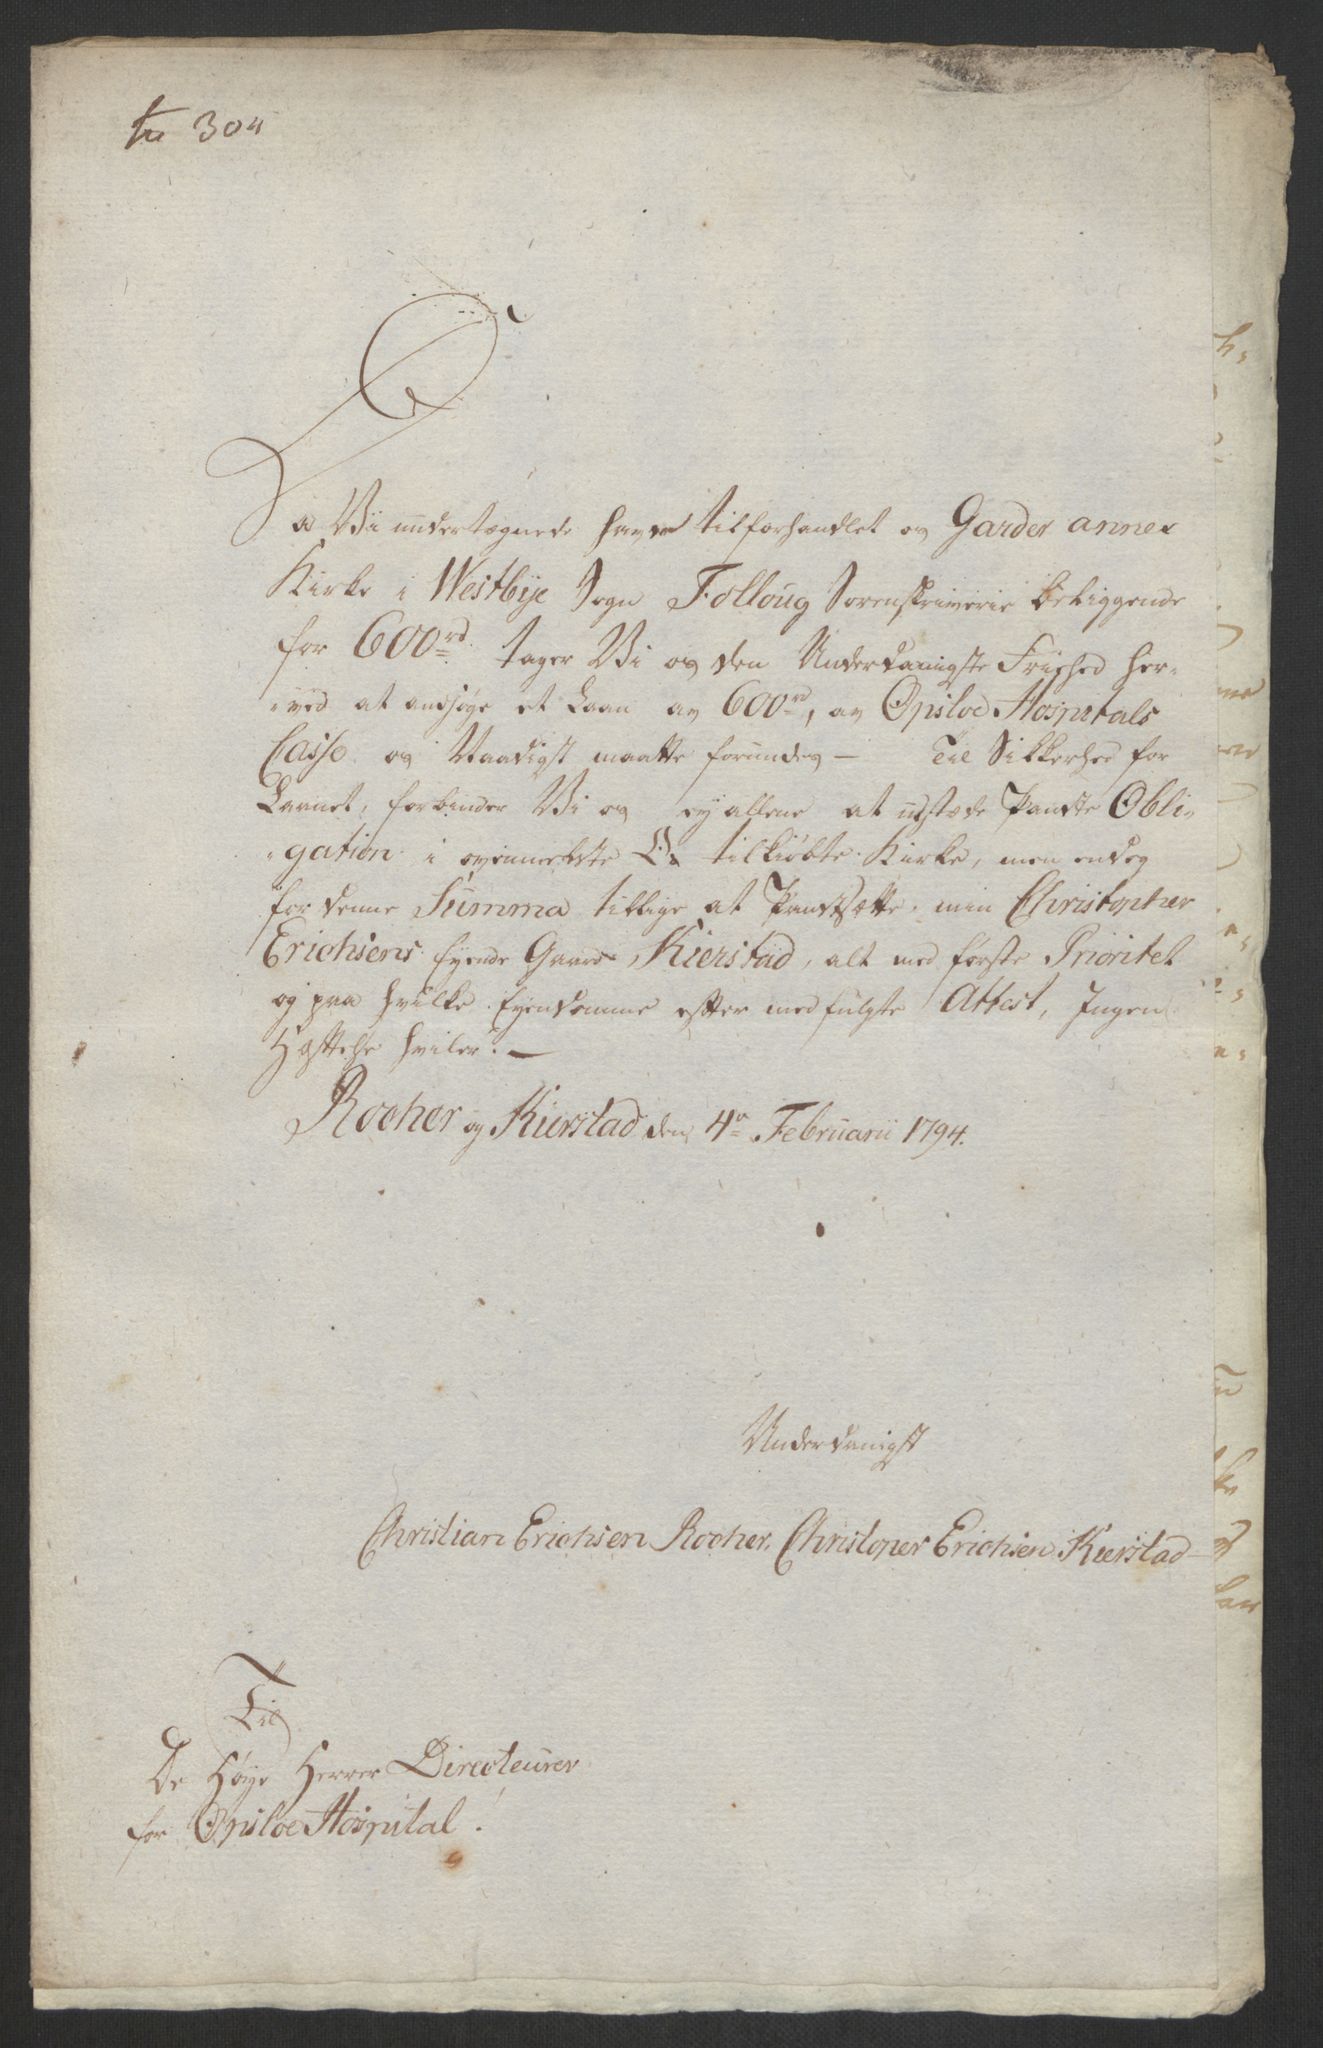 No 304
Da Vi undertegnede haver tilforhandlet os Garder annex
Kirke i Westbye Sogn Folloug Sorenskriverie beliggende
for 600rd tager Vi os den Underdanigste Friehed her-
-ved at andsøge et Laan av 600rd, av Opsloe Hospitals
Casse os Naadigst maatte forundes – Til Sikkerhed for
Laanet, forbinder Vi os ey allene at udstæde Pandte Obli-
-gation i ovenmeldte tilkiøbte Kirke, men endog
for denne Summa tillige at Pandtsætte min Christopher
Erichsens Eyende Gaard Kierstad, alt med første Prioritet
og paa hvilke Eyendomme efter medfulgte Attest, Ingen
Hæftelse hviler. –
Rocher og Kierstad den 4de Februarii 1794.
Underdanigst
Christian Erichsen Rocher. Christoper Erichsen Kierstad
Til
De Høye Herrer Directeurer
for Opsloe Hospital!